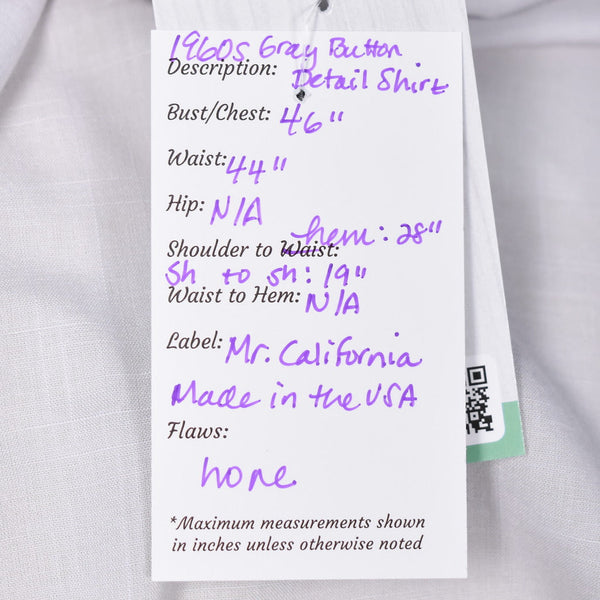 1960s Gray Button
Description: Detail Shirt
Bust/Chest: 46"
Waist: 44"
Hip: N/A
hem: 28"
Shoulder to Waist:
Sh to sh: 19"
Waist to Hem: N/A
Label: Mr. California
Made in the USA
Flaws:
none
*Maximum measurements shown
in inches unless otherwise noted